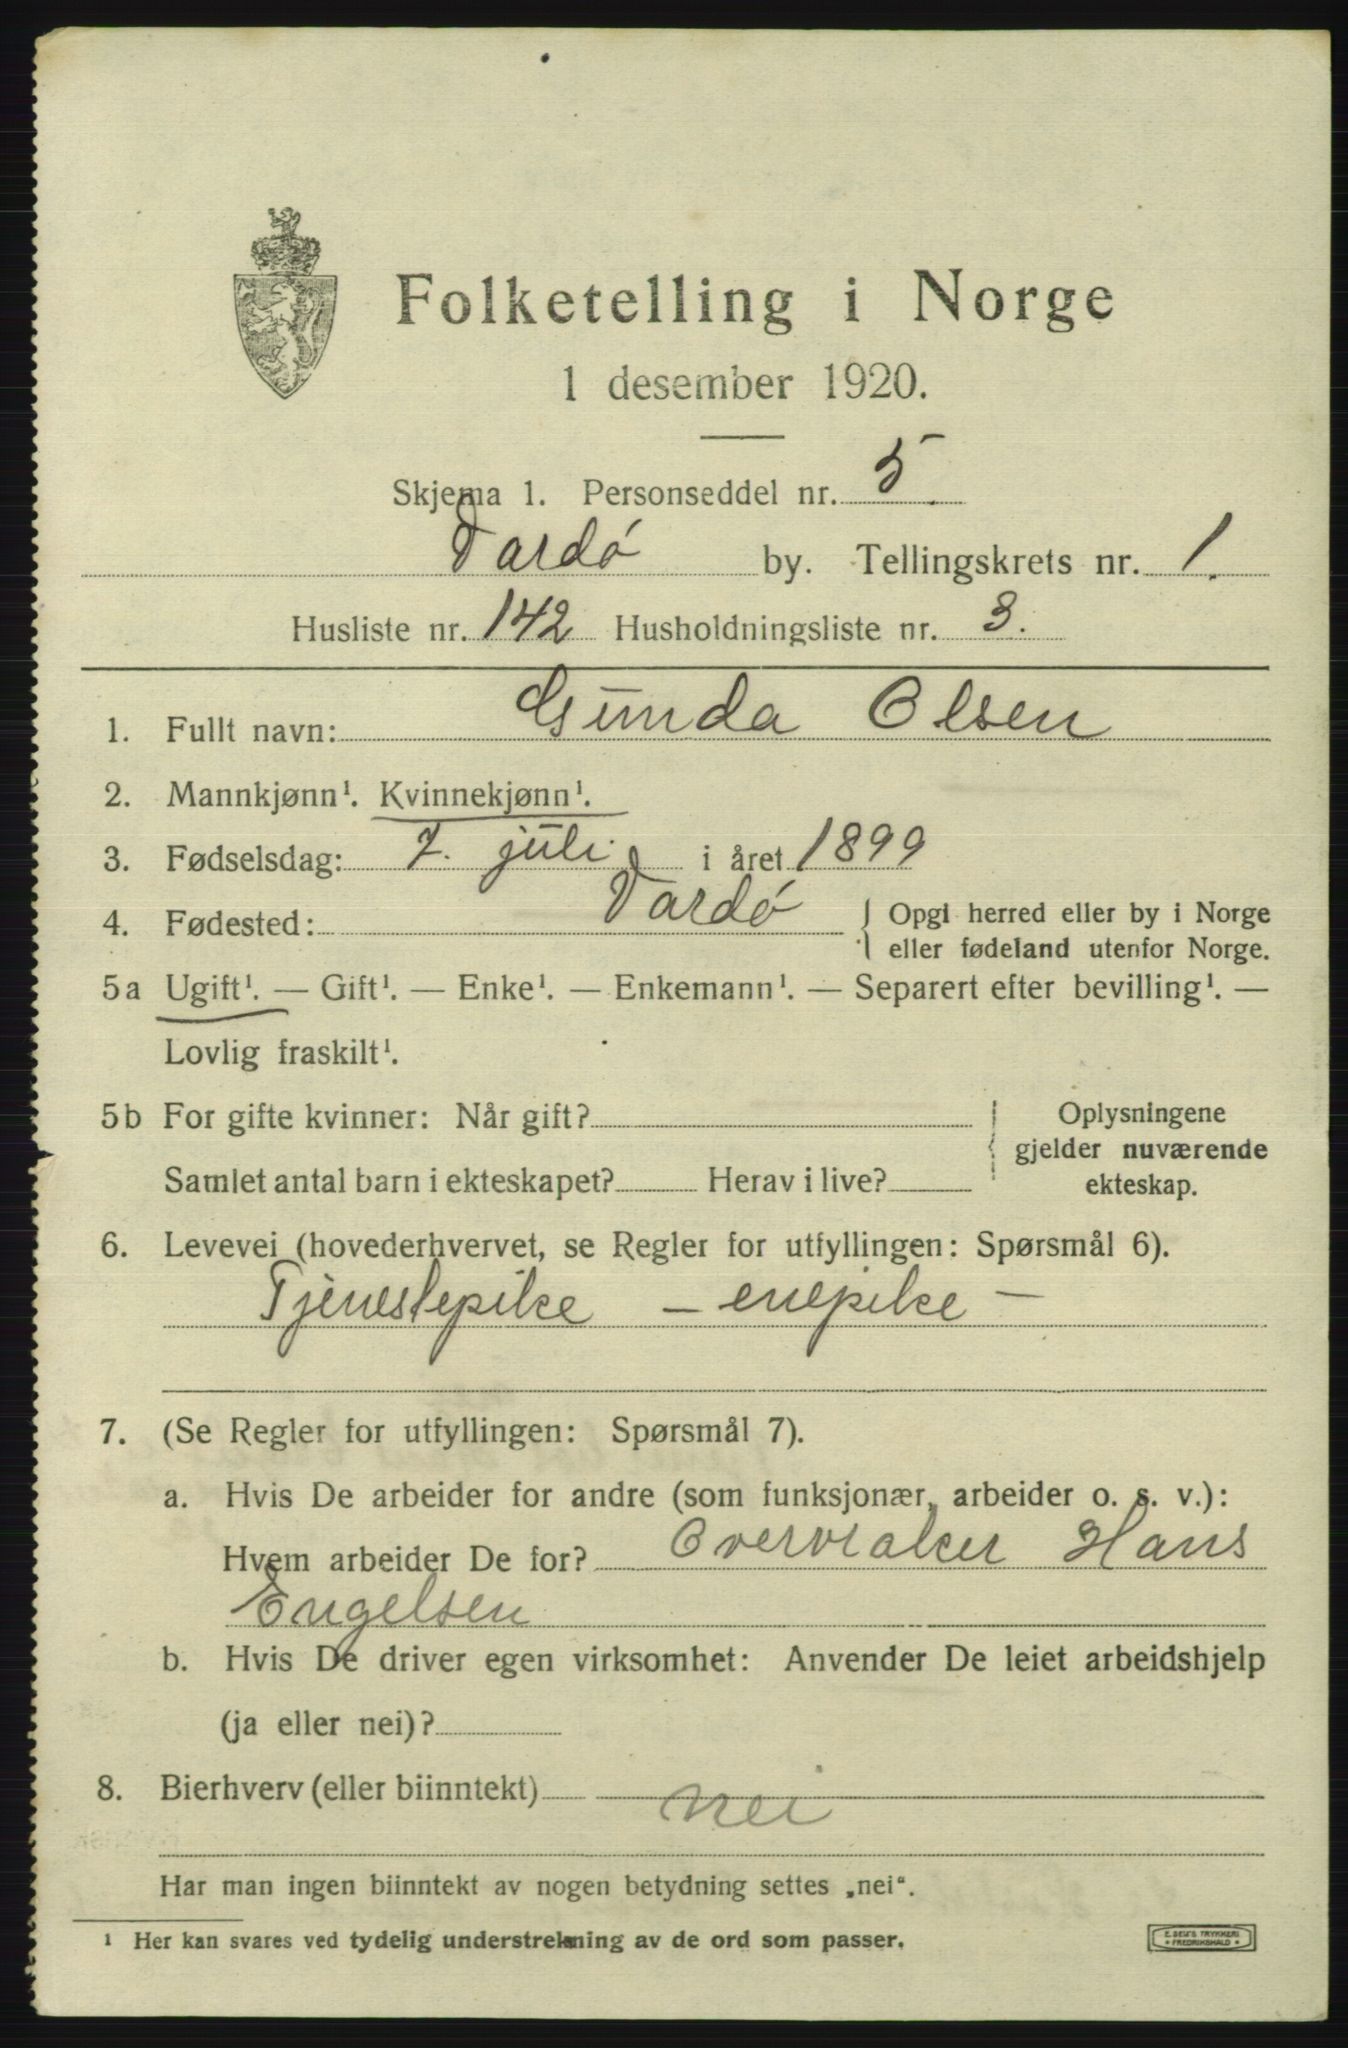 Folketelling i Norge
1 desember 1920.
Skjema 1. Personseddel nr. 5.
Vardø by. Tellingskrets nr. 1.
Husliste nr. 142 Husholdningsliste nr. 3.
1. Fullt navn: Gunda Olsen
2. Mannkjønn¹. Kvinnekjønn¹.
3. Fødselsdag: 7. juli i året 1899
4. Fødested: Vardø { Opgi herred eller by i Norge
eller fødeland utenfor Norge.
5a Ugift¹. — Gift¹. — Enke¹. — Enkemann¹. — Separert efter bevilling¹. —
Lovlig fraskilt¹.
5b For gifte kvinner: Når gift? Oplysningene
gjelder nuværende
Samlet antal barn i ekteskapet? Herav i live? ekteskap.
6. Levevei (hovederhvervet, se Regler for utfyllingen: Spørsmål 6).
Tjenestepike — enepike —
7. (Se Regler for utfyllingen: Spørsmål 7).
a. Hvis De arbeider for andre (som funksjonær, arbeider o. s. v.):
Hvem arbeider De for? Overvraker Hans
Engelsen
b. Hvis De driver egen virksomhet: Anvender De leiet arbeidshjelp
(ja eller nei)?
8. Bierhverv (eller biinntekt) nei
Har man ingen biinntekt av nogen betydning settes „nei“.
¹ Her kan svares ved tydelig understrekning av de ord som passer.
E. SEM'S TRYKKERI
FREDRIKSHALD